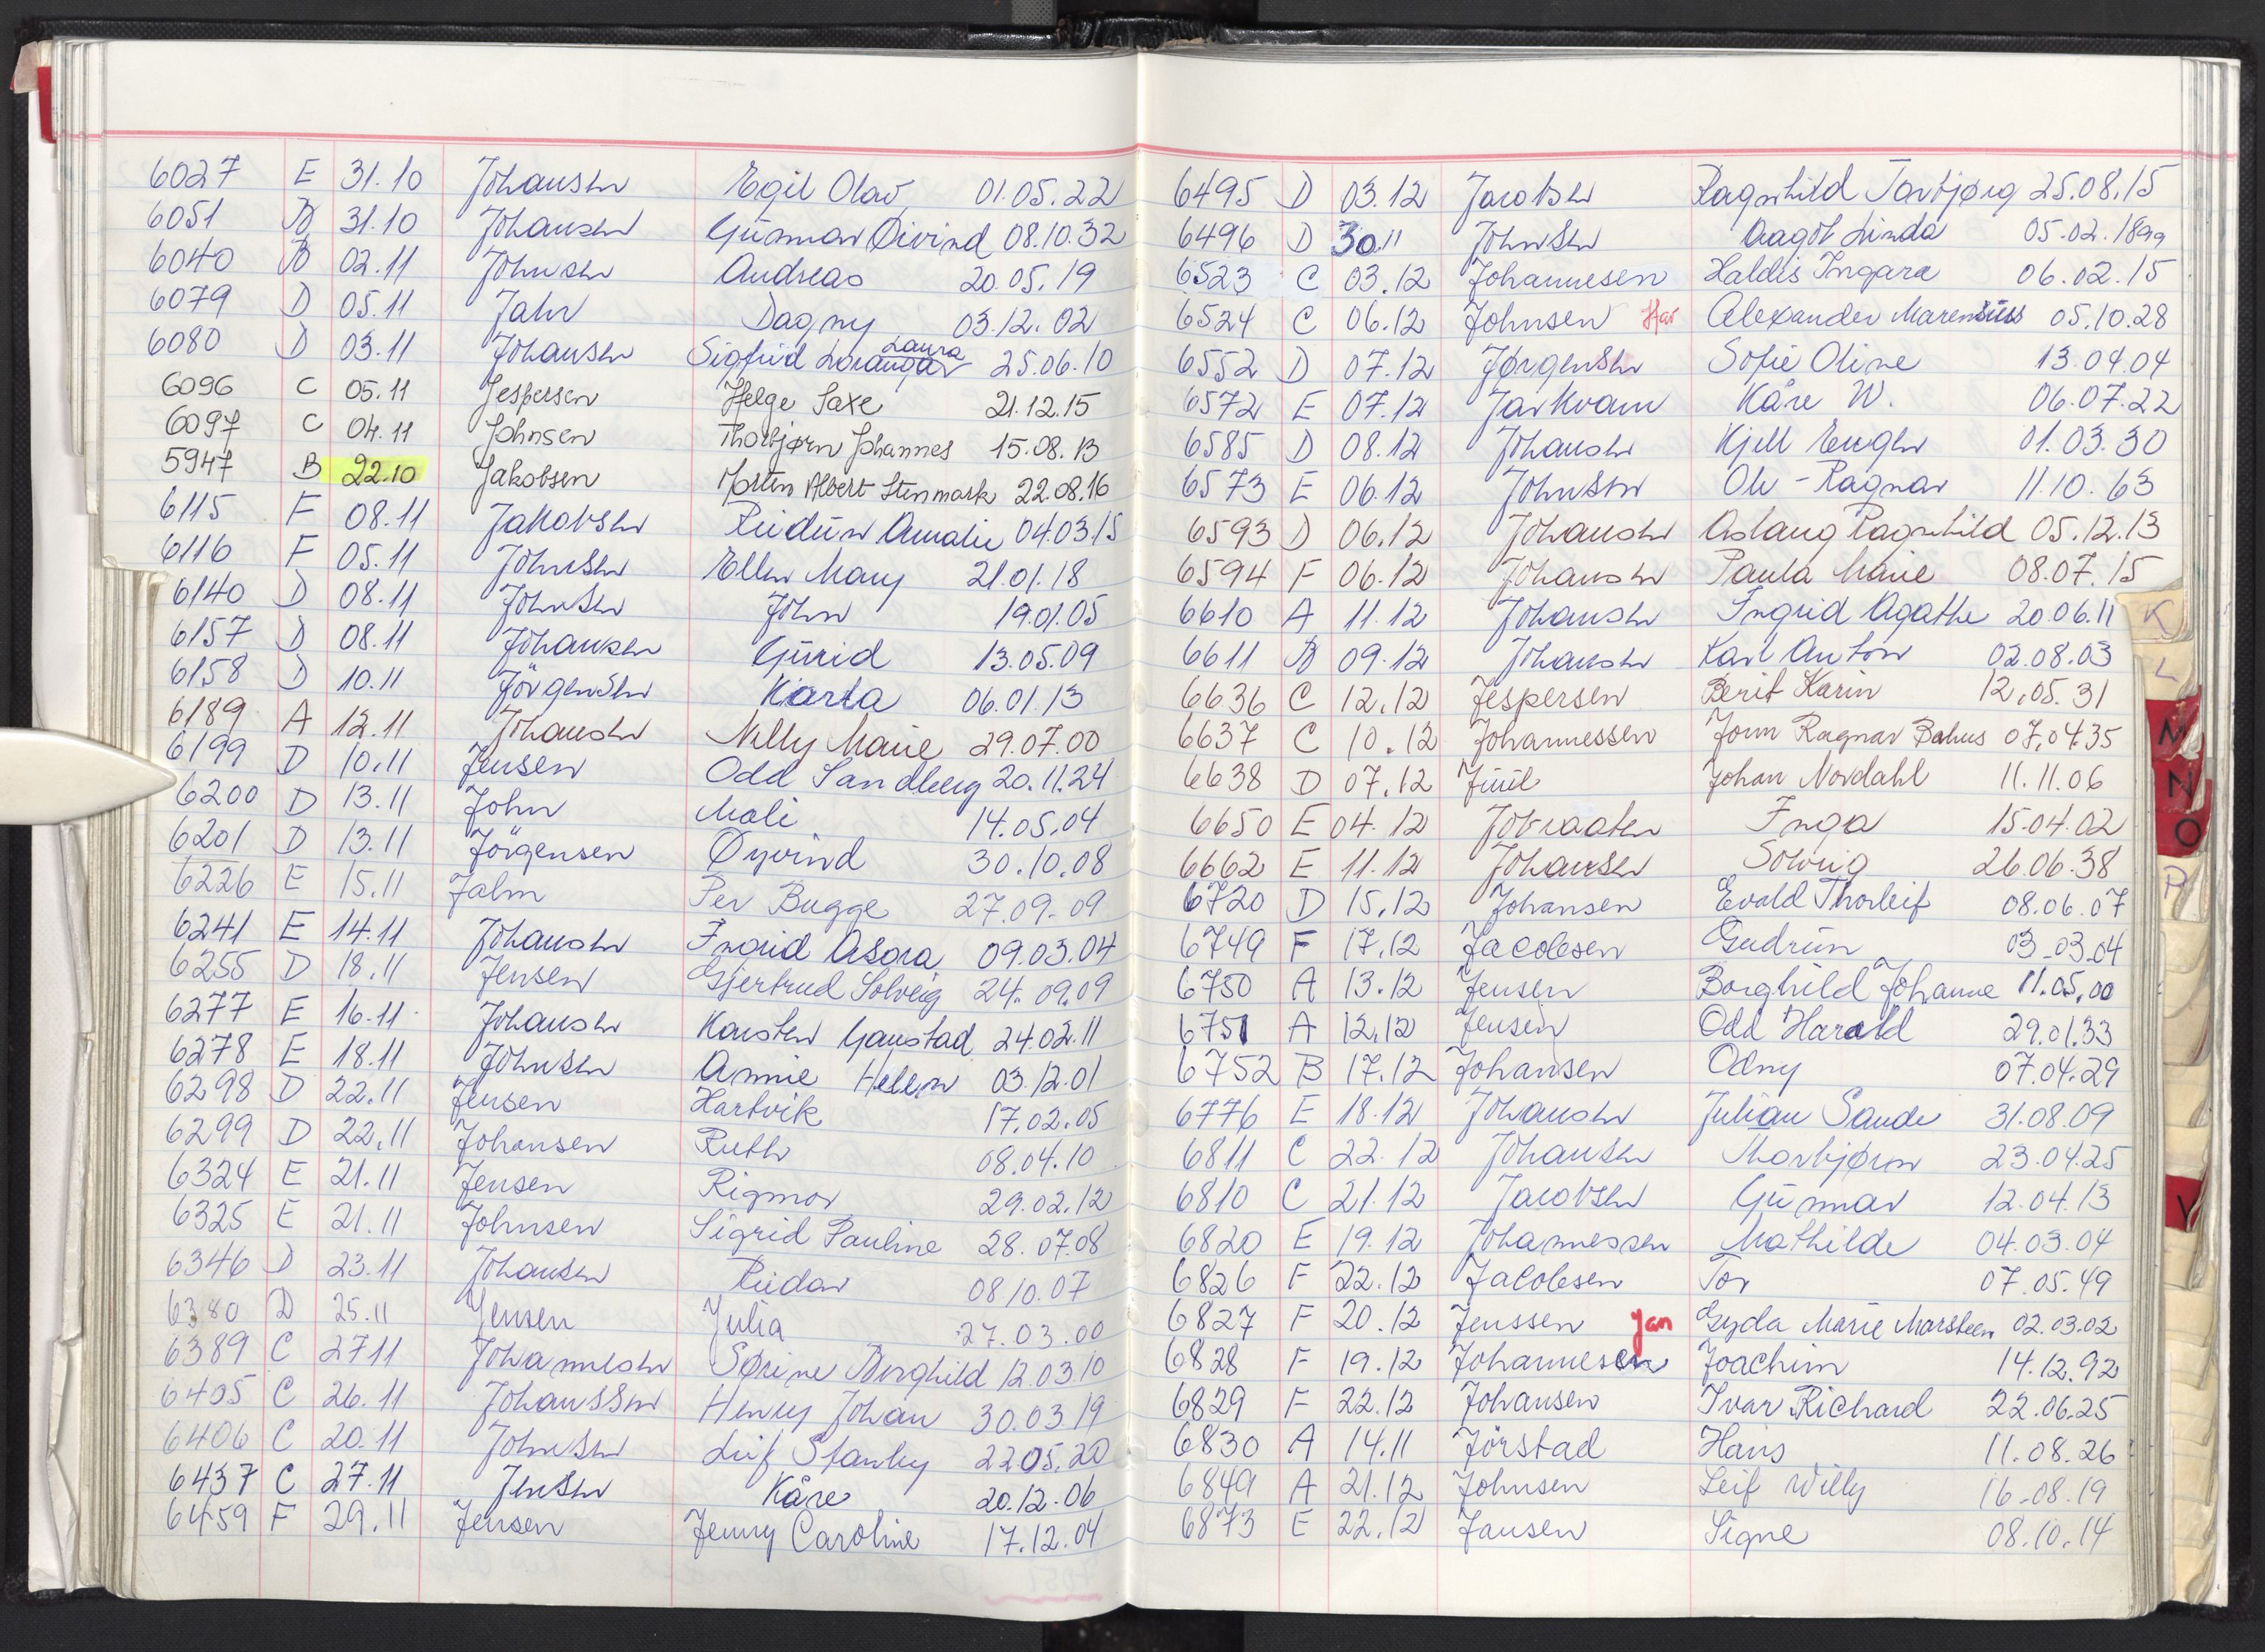 6027 E 31.10 Johansen Egil Olav 01.05.22
6051 B 31.10 Johansen Gunnar Øivind 08.10.32
6040 B 02.11 Johnsen Andreas 20.05.19
6079 D 05.11 Jahr Dagny 03.12.02
6080 D 03.11 Johansen Sigfrid Laura 25.06.10
6096 C 05.11 Jespersen Helge Saxe 21.12.15
6097 C 04.11 Johnsen Thorbjørn Johannes 15.08.13
5947 B 22.10 Jakobsen Morten Albert Stenmark 22.08.16
6115 F 08.11 Jakobsen Reidun Amalie 04.03.15
6116 F 05.11 Johnsen Ellen Mary 21.01.18
6140 D 08.11 Johnsen John 19.01.05
6157 D 08.11 Johansen Gurid 13.05.09
6158 D 10.11 Jörgensen Karla 06.01.13
6189 A 12.11 Johansen Nelly Marie 29.07.00
6199 D 10.11 Jensen Odd Sandberg 20.11.24
6200 D 13.11 John Mali 14.05.04
6201 D 13.11 Jörgensen Øyvind 30.10.08
6226 E 15.11 Jalm Per Bugge 27.09.09
6241 E 14.11 Johansen Ingrid Asora 09.03.04
6255 D 18.11 Jensen Gjertrud Solveig 24.09.09
6277 E 16.11 Johansen Karsten Gaustad 24.02.11
6278 E 18.11 Johnsen Annie Helen 03.12.01
6298 D 22.11 Jensen Hartvik 17.02.05
6299 D 22.11 Johansen Ruth 08.04.10
6324 E 21.11 Jensen Rigmor 29.02.12
6325 E 21.11 Johnsen Sigrid Pauline 28.07.08
6346 D 23.11 Johansen Reidar 08.10.07
6380 D 25.11 Jensen Julia 27.03.00
6389 C 27.11 Johannesen Sørine Borghild 12.03.10
6405 C 26.11 Johanssen Henry Johan 30.03.19
6406 C 20.11 Johnsen Leif Stanley 22.05.20
6437 C 27.11 Jensen Kåre 20.12.06
6459 F 29.11 Jensen Jenny Caroline 17.12.04
6495 D 03.12 Jacobsen Ragnhild Torbjørg 25.08.15
6496 D 30.11 Johnsen Aagot Linda 05.02.1899
6523 C 03.12 Johannesen Haldis Ingara 06.02.15
6524 C 06.12 Johnsen Har Alexander Marensius 05.10.28
6552 D 07.12 Jørgensen Sofie Oline 13.04.04
6572 E 07.12 Jarkvam Kåre W. 06.07.22
6585 D 08.12 Johansen Kjell Engen 01.03.30
6573 E 06.12 Johnsen Ole-Ragnar 11.10.63
6593 D 06.12 Johansen Aslaug Ragnhild 05.12.13
6594 F 06.12 Johansen Paula Marie 08.07.15
6610 A 11.12 Johansen Ingrid Agathe 20.06.11
6611 B 09.12 Johansen Karl Anton 02.08.03
6636 C 12.12 Jespersen Berit Karin 12.05.31
6637 C 10.12 Johannessen Jonn Ragnar Bahus 07.04.35
6638 D 07.12 Juul Johan Nordahl 11.11.06
6650 E 04.12 Jobraaten Inga 15.04.02
6662 E 11.12 Johansen Solveig 26.06.38
6720 D 15.12 Johansen Evald Thorleif 08.06.07
6749 F 17.12 Jacobsen Gudrun 03.03.04
6750 A 13.12 Jensen Borghild Johanne 11.05.00
6751 A 12.12 Jensen Odd Harald 29.01.33
6752 B 17.12 Johansen Odny 07.04.29
6776 E 18.12 Johansen Julian Sande 31.08.09
6811 C 22.12 Johansen Thorbjørn 23.04.25
6810 C 21.12 Jacobsen Gunnar 12.04.13
6820 E 19.12 Johannessen Mathilde 04.03.04
6826 F 22.12 Jacobsen Tor 07.05.49
6827 F 20.12 Jenssen Jan Gyda Marie Marsteen 02.03.02
6828 F 19.12 Johannesen Joachim 14.12.92
6829 F 22.12 Johansen Ivar Richard 22.06.25
6830 A 14.11 Jörstad Hans 11.08.26
6849 A 21.12 Johnsen Leif Willy 16.08.19
6873 E 22.12 Jansen Signe 08.10.14
K
L
M
N
O
P
V